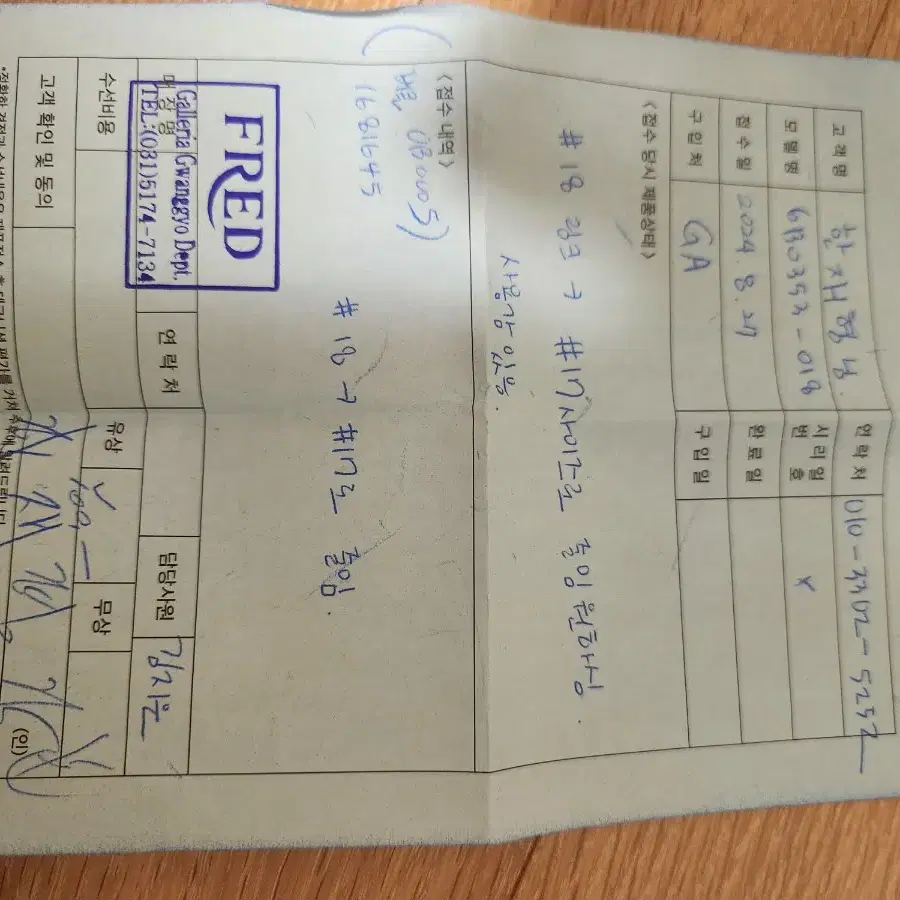 고객명 한재형님 연락처 010-3302-5252
모델명 6B0353-018 시리얼 번호 X
접수일 2024. 8. 27 완료일
구입처 GA 구입일
<접수 당시 제품상태>
#18 링크 → #17사이즈로 줄임 원하심.
사용감 있음.
<접수 내역>
0B0005)
1681645
#18 → #17로 줄임.
FRED
Galleria Gwanggyo Dept.
TEL:(031)5174-7134
매장명 연락처 담당사원 김지은
수선비용 유상 무상
고객 확인 및 동의 (인)